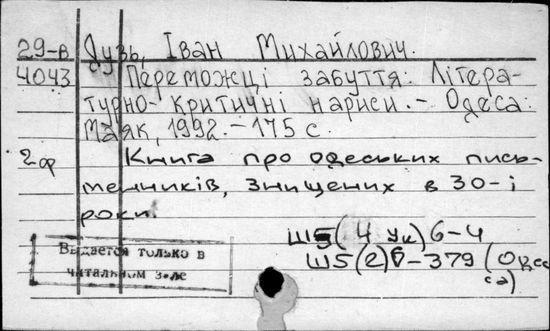 29-в Дузь, Іван Михайлович.
4043 Переможці забуття: Літера-
турно-критичні нариси. - Одеса:
Маяк, 1992. - 175 с.
2ф Книга про одеських пись-
менників, знищених в 30-і
роки.
Ш5(4 Ук)6-4
Ш5(2)6-379 (Одес
са)
Выдается только в
читальном зале